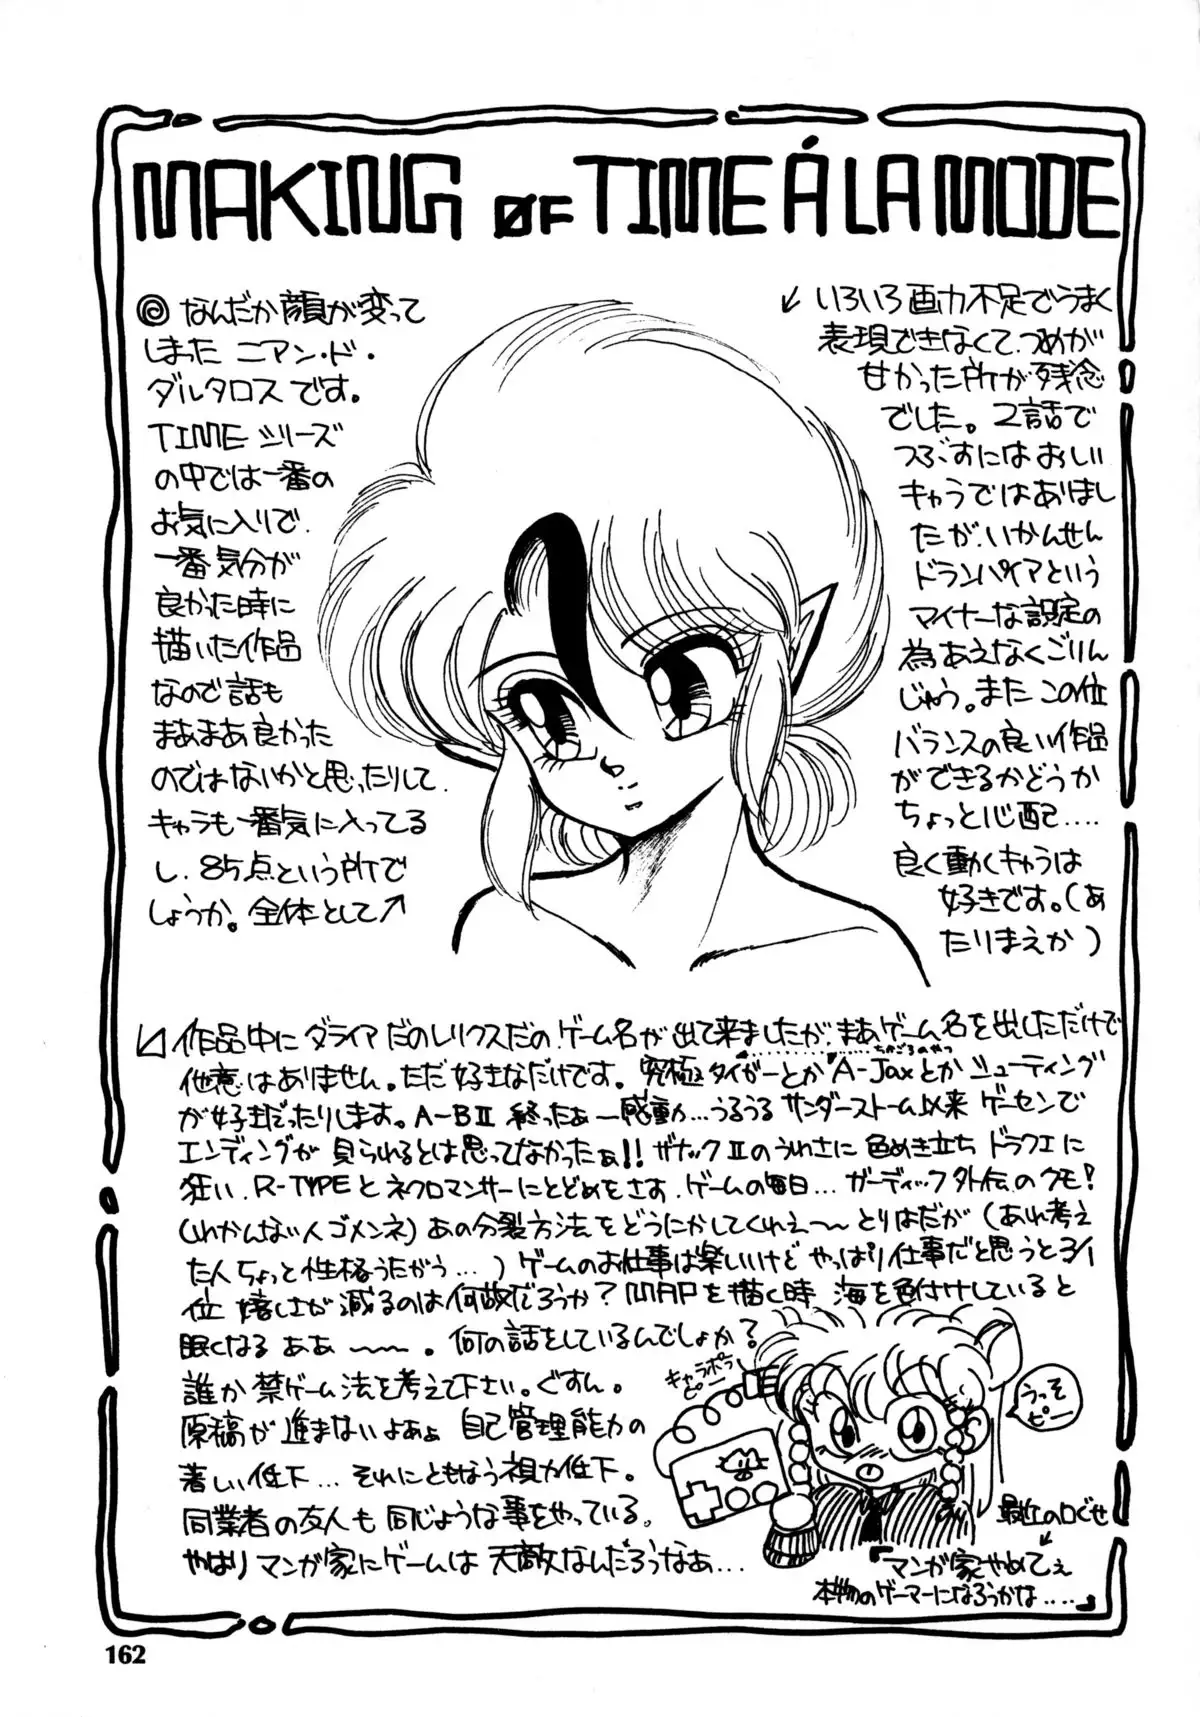 MAKING OF TIME Á LA MODE
◎なんだか顔が変って
しまった ニアン・ド・
ダルタロスです。
TIMEシリーズ
の中では一番の
お気に入りで、
一番気分が
良かった時に
描いた作品
なので話も
まあまあ良かった
のではないかと思ったりして、
キャラも一番気に入ってる
し、85点という所で
しょうか。全体として↗
↙いろいろ画力不足でうまく
表現できなくて、つめが
甘かった所が残念
でした。2話で
つぶすにはおしい
キャラではありまし
たが、いかんせん
ドランパイアという
マイナーな設定の
為あえなくごりん
じゅう。また この位
バランスの良い作品
ができるかどうか
ちょっと心配....
良く動くキャラは
好きです。(あ
たりまえか)
作品中に ダライアだのレリクスだの、ゲーム名が出て来ましたが、まあゲーム名を出しただけで
他意はありません。ただ好きなだけです。究極タイガーとかA-Jaxとかシューティング
ちかごろのやつ
が好きだったりします。A-BⅡ 終ったぁ〜感動...うるうる サンダーストーム以来 ゲーセンで
エンディングが 見られるとは思ってなかったぁ!! ザナックⅡのうわさに 色めき立ち ドラクエに
狂い、R-TYPEとネクロマンサーにとどめをさす、ゲームの毎日... ガーディック外伝のクモ!
(わかんない人ゴメンネ) あの分裂方法をどうにかしてくれえ〜〜 とりはだが (あれ考え
た人ちょっと性格うたがう...) ゲームのお仕事は楽しいけど やっぱり仕事だと思うと3/1
位 嬉しさが 減るのは 何故だろうか? MAPを描く時 海を色付けしていると
眠くなる ああ 〜〜。何の話をしているんでしょか?
誰か禁ゲーム法を考えて下さい。ぐすん。
原稿が 進まないよぁぉ 自己管理能力の
著しい低下... それにともなう視力低下。
同業者の友人も 同じような事をやっている。
やはり マンガ家にゲームは 天敵なんだろうなあ...
キャラポラ
ピー
うっそ
ピー
最近の口ぐせ
『マンガ家やめてぇ
本物のゲーマーになろうかな....』
162